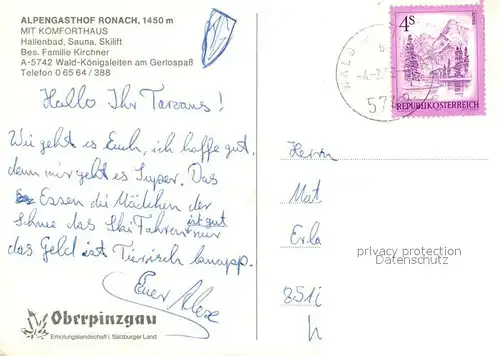 ALPENGASTHOF RONACH, 1450 m
MIT KOMFORTHAUS
Hallenbad, Sauna, Skilift
Bes. Familie Kirchner
A-5742 Wald-Königsleiten am Gerlospaß
Telefon 0 65 64 / 388
Hallo Ihr Tarzans!
Wie geht es Euch, ich hoffe gut,
denn mir geht es Super. Das
Essen die Mädchen der
Schnee das Ski Fahren ist gut nur
das Geld ist Tierisch knapp.
Euer
Oberpinzgau
Erholungslandschaft i. Salzburger Land
4S
REPUBLIK ÖSTERREICH
WALD
5742
Herrn
Mat
Erla
privacy protection
Datenschutz
851